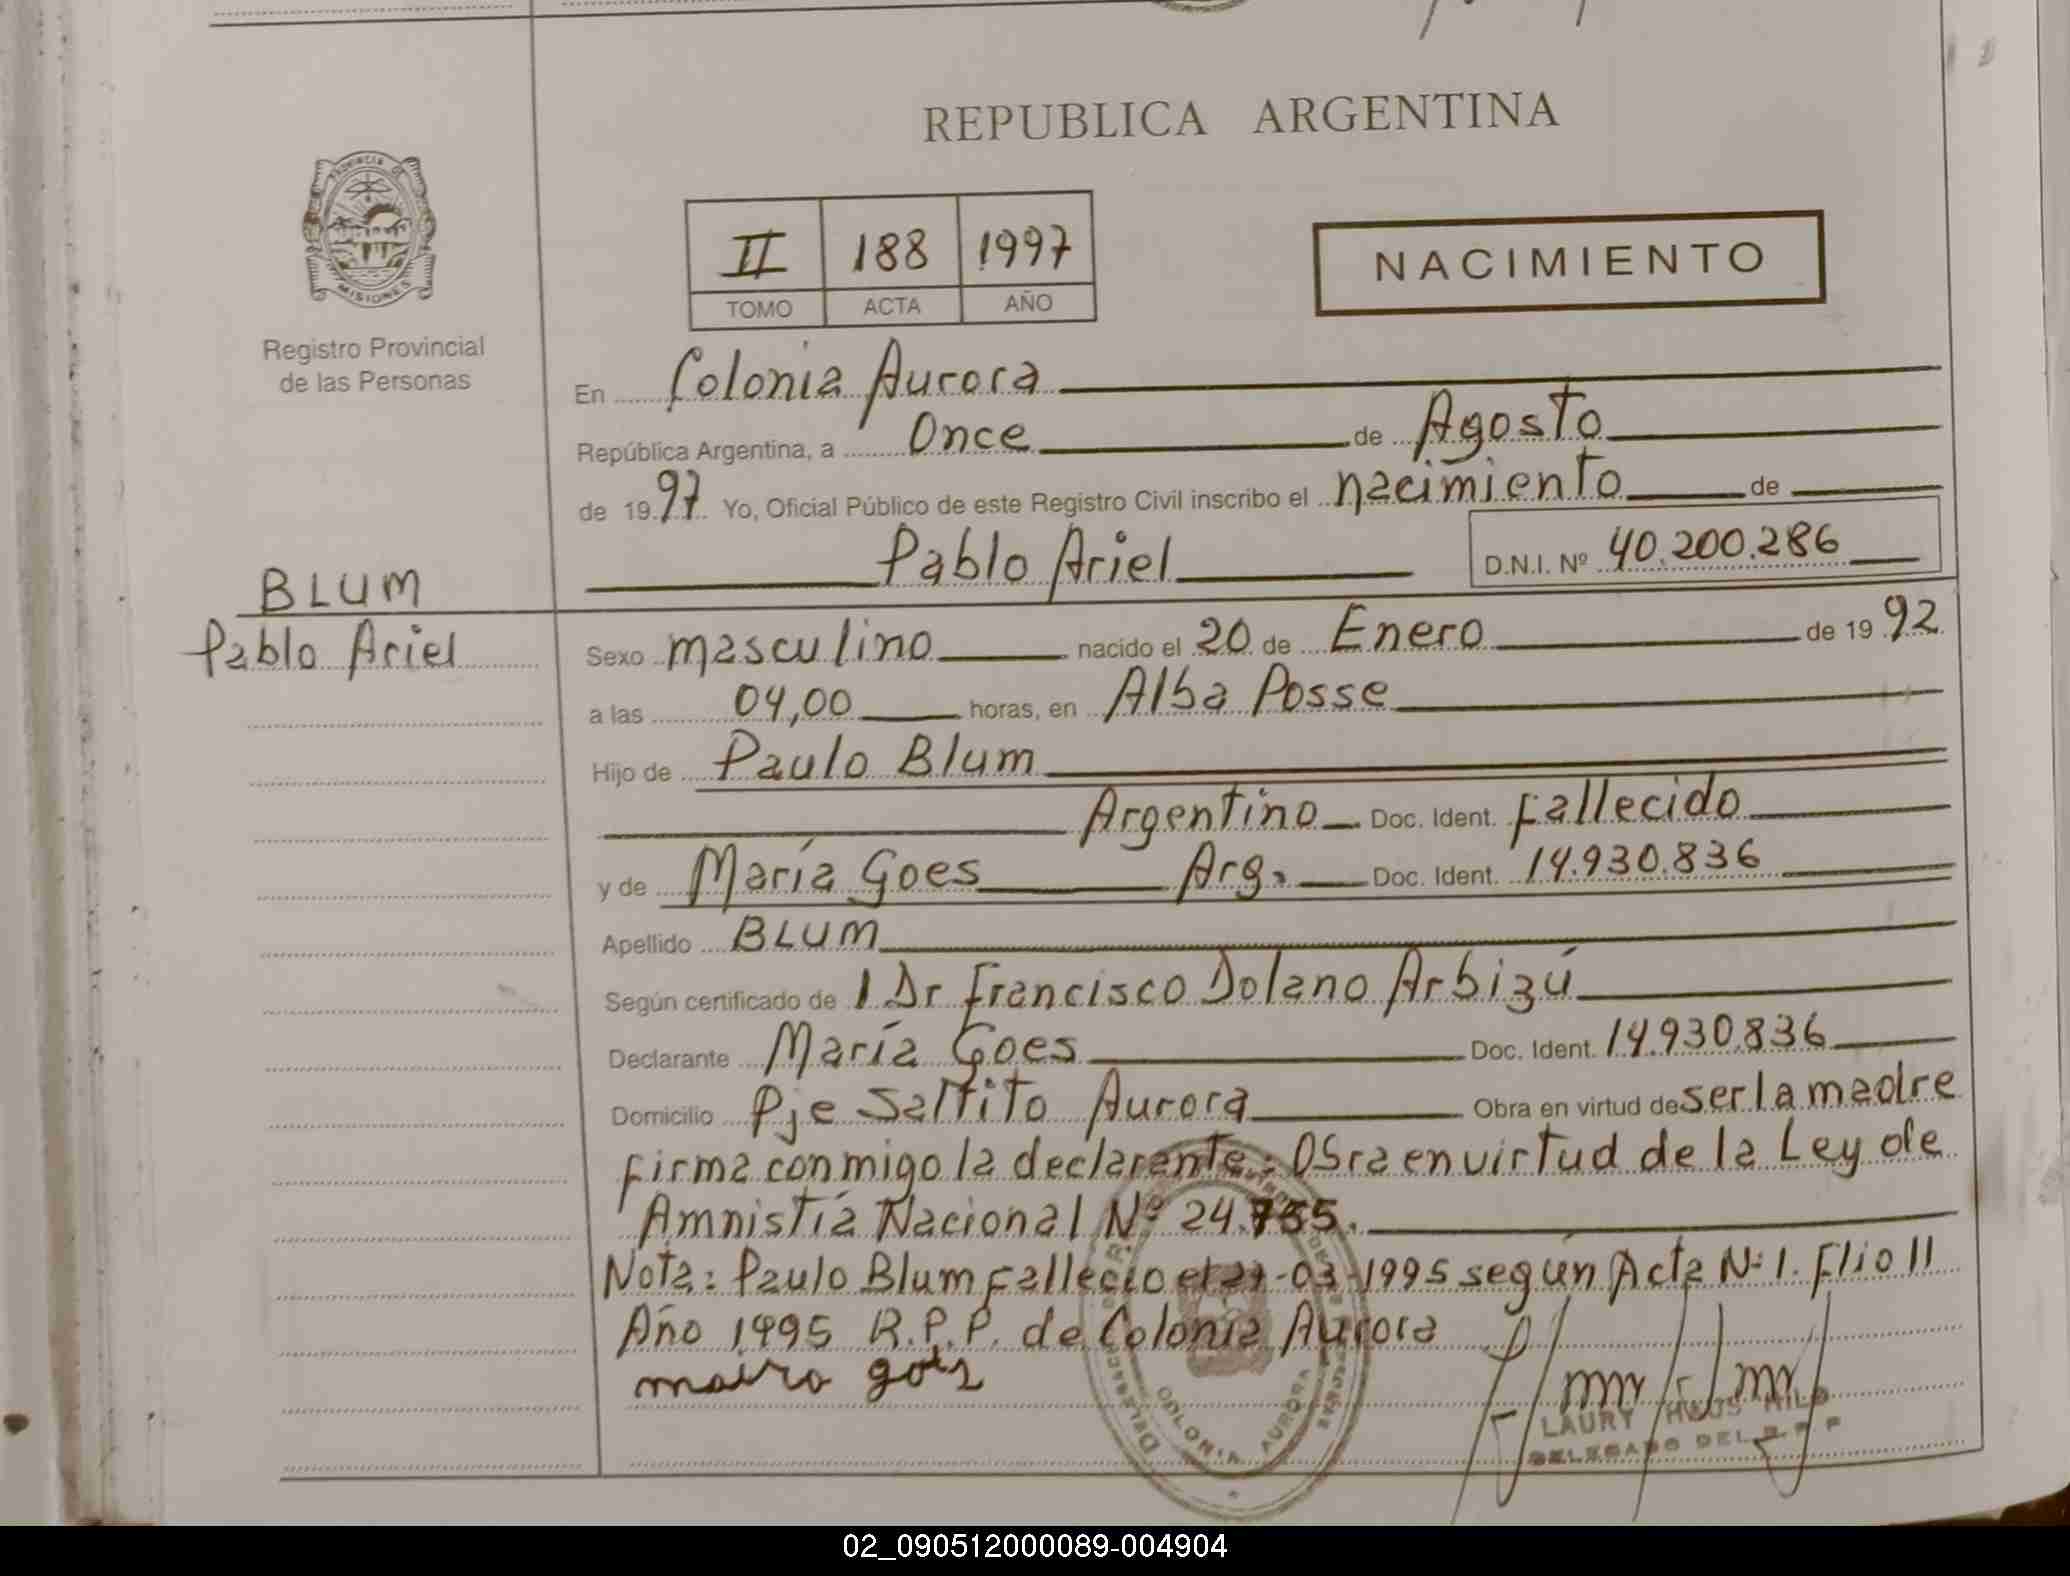 REPUBLICA ARGENTINA
PROVINCIA DE MISIONES
Registro Provincial
de las Personas
II 188 1997
TOMO ACTA AÑO
NACIMIENTO
En Colonia Aurora
República Argentina, a Once de Agosto
de 1997 Yo, Oficial Público de este Registro Civil inscribo el nacimiento de
Pablo Ariel D.N.I. Nº 40.200.286
BLUM
Pablo Ariel
Sexo masculino nacido el 20 de Enero de 1992
a las 04,00 horas, en Alba Posse
Hijo de Paulo Blum
Argentino Doc. Ident. Fallecido
y de María Goes Arg. Doc. Ident. 14.930.836
Apellido BLUM
Según certificado de 1 Dr Francisco Dolano Arbizú
Declarante María Goes Doc. Ident. 14.930.836
Domicilio Pje Saltito Aurora Obra en virtud de ser la madre
firma conmigo la declarante: Obra en virtud de la Ley de
Amnistía Nacional Nº 24.755.
Nota: Paulo Blum fallecio el -03-1995 según Acta Nº 1. Flio 11
Año 1995 R.P.P. de Colonia Aurora
COLONIA AURORA
LAURY MILO
DELEGADO DEL R P P
02_090512000089-004904